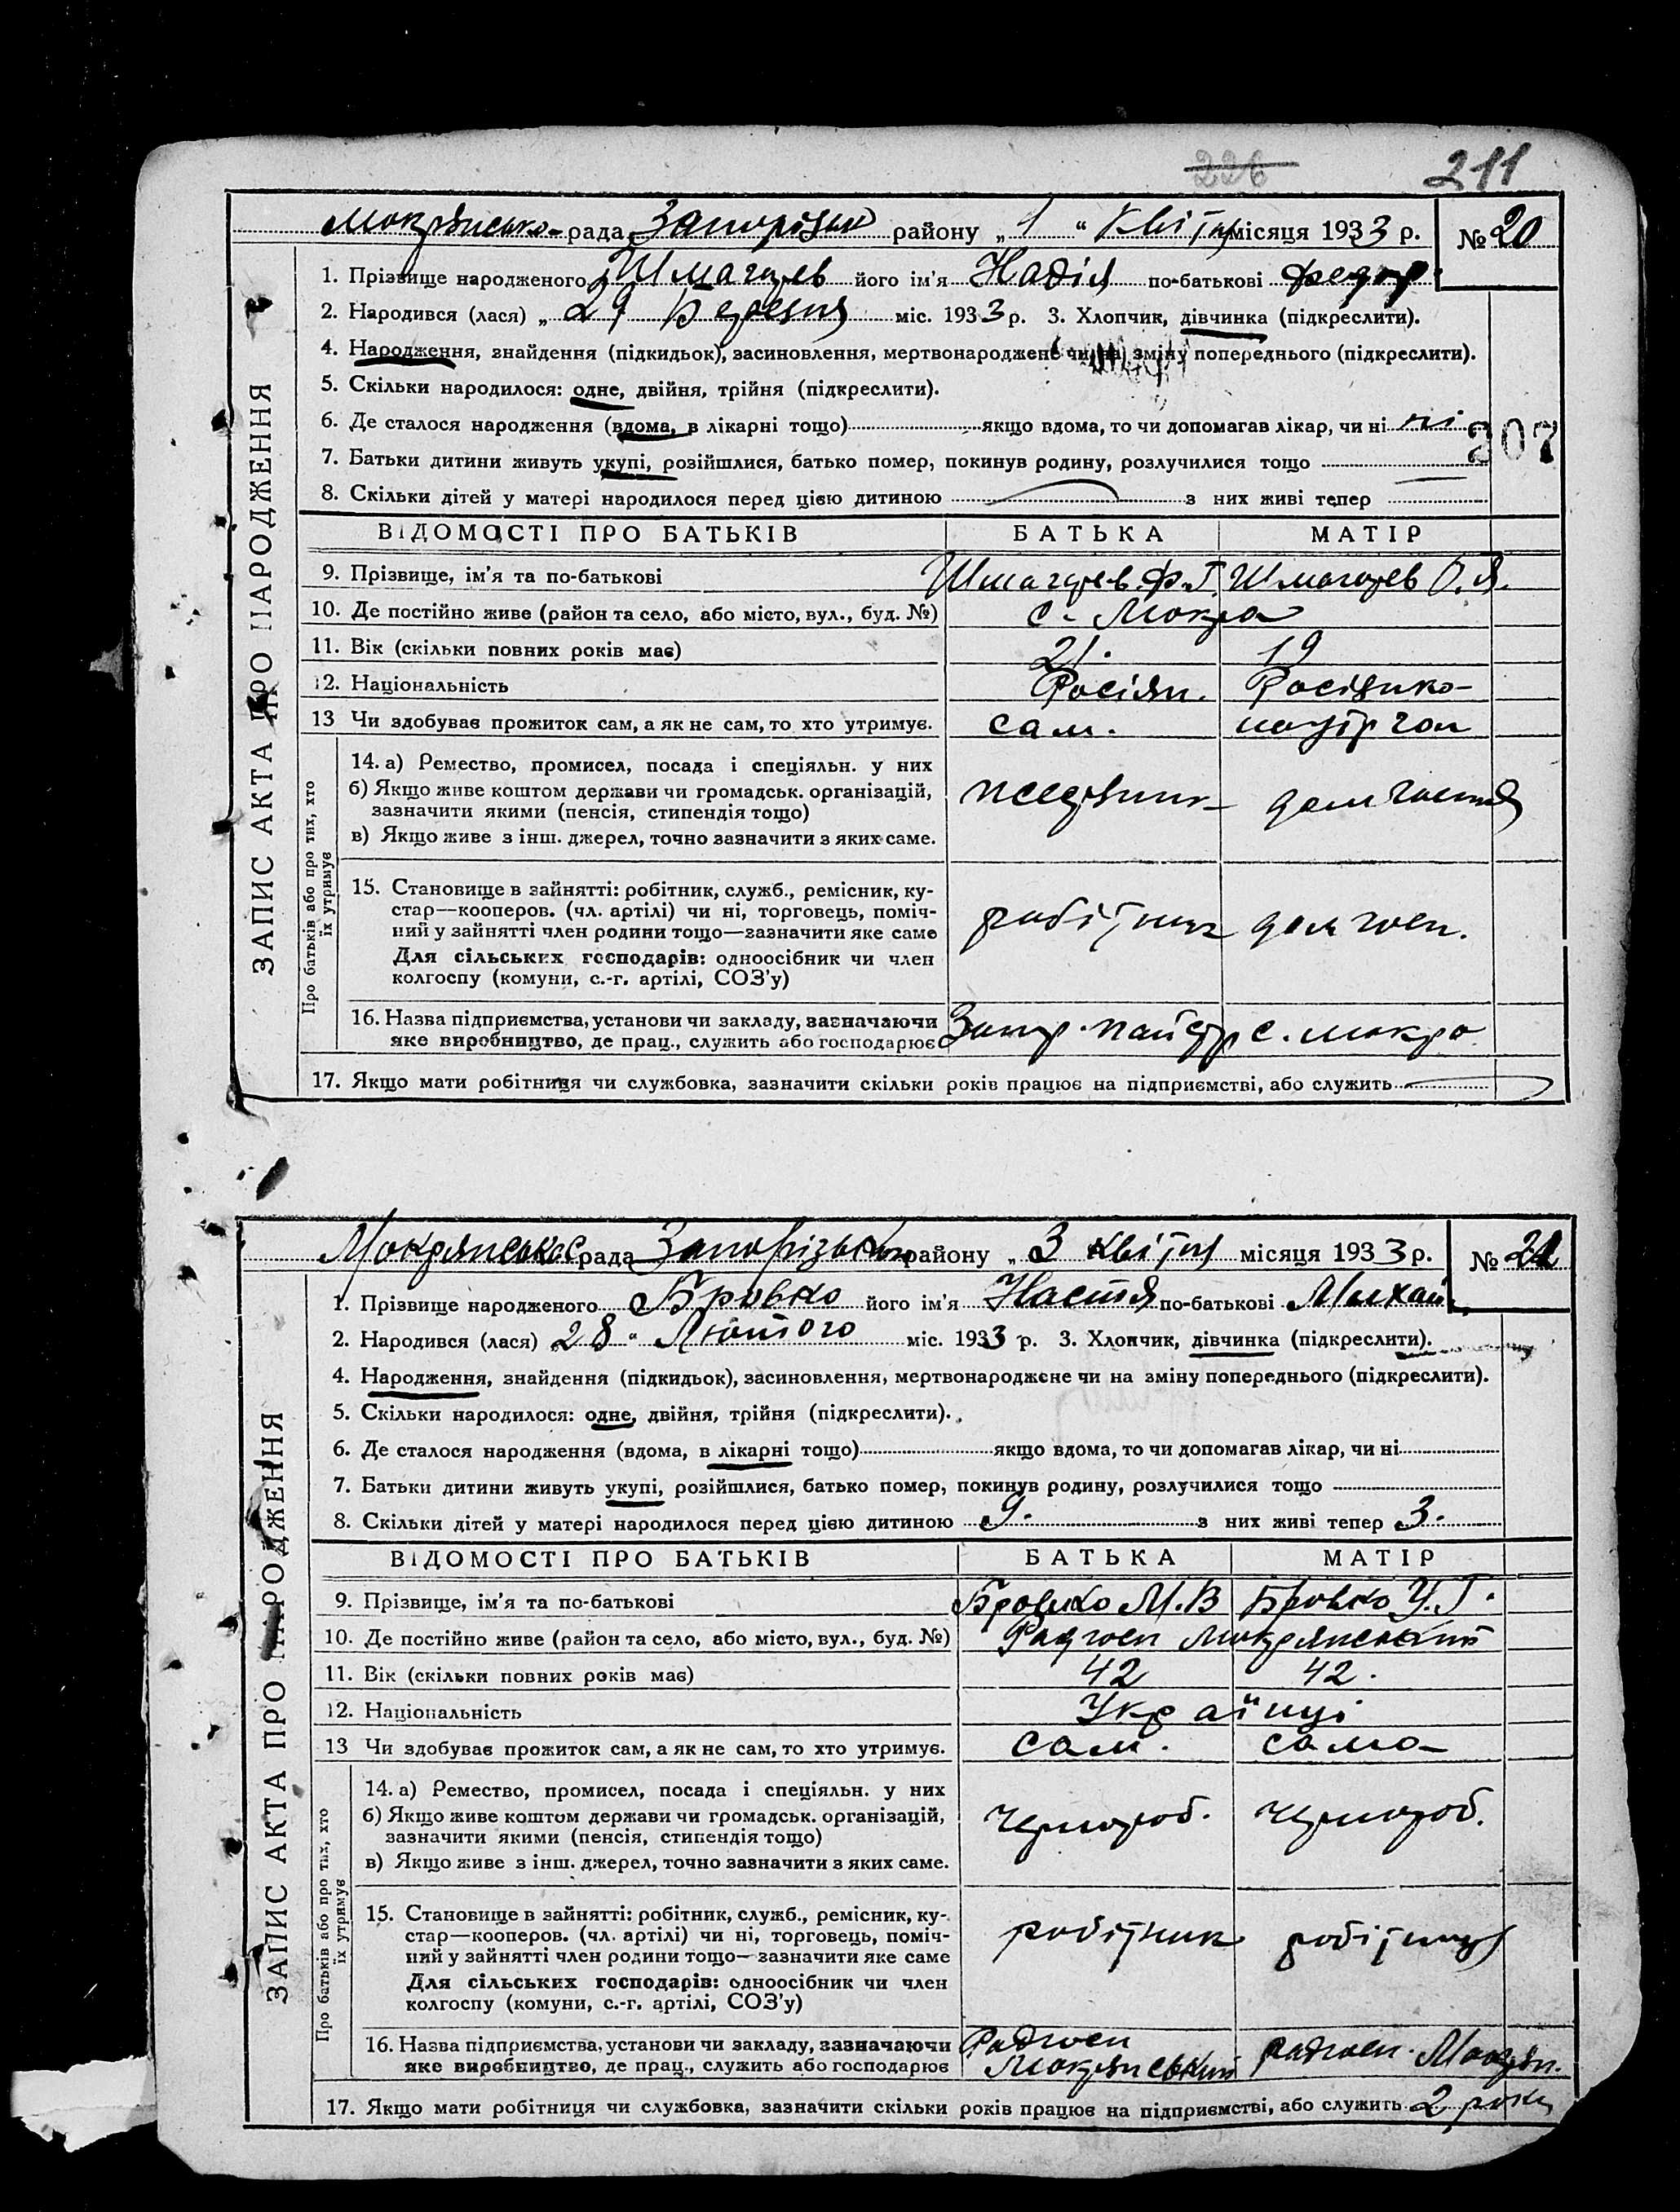 226 211
Мокрянсько рада Запорізьк району „1“ Квітн місяця 1933 р. № 20
1. Прізвище народженого його ім'я Надія по-батькові Федор
2. Народився (лася) „29 Березня міс. 1933 р. 3. Хлопчик, дівчинка (підкреслити).
4. Народження, знайдення (підкидьок), засиновлення, мертвонароджене чи на зміну попереднього (підкреслити).
5. Скільки народилося: одне, двійня, трійня (підкреслити).
6. Де сталося народження (вдома, в лікарні тощо) якщо вдома, то чи допомагав лікар, чи ні ні
307
7. Батьки дитини живуть укупі, розійшлися, батько помер, покинув родину, розлучилися тощо
8. Скільки дітей у матері народилося перед цією дитиною з них живі тепер
ВІДОМОСТІ ПРО БАТЬКІВ БАТЬКА МАТІР
9. Прізвище, ім'я та по-батькові Ф.Г. О.Я.
10. Де постійно живе (район та село, або місто, вул., буд. №) с. Мокра
11. Вік (скільки повних років має) 21. 19
12. Національність Росіян. Росіянка
13 Чи здобуває прожиток сам, а як не сам, то хто утримує. сам.
14. а) Ремество, промисел, посада і спеціяльн. у них
б) Якщо живе коштом держави чи громадськ. організацій,
зазначити якими (пенсія, стипендія тощо)
в) Якщо живе з інш. джерел, точно зазначити з яких саме.
15. Становище в зайнятті: робітник, служб., ремісник, ку-
стар—кооперов. (чл. артілі) чи ні, торговець, поміч-
ний у зайнятті член родини тощо—зазначити яке саме
робітник дом госп.
Для сільських господарів: одноосібник чи член
колгоспу (комуни, с.-г. артілі, СОЗ'у)
16. Назва підприємства, установи чи закладу, зазначаючи
яке виробництво, де прац., служить або господарює с. Мокра
17. Якщо мати робітниця чи службовка, зазначити скільки років працює на підприємстві, або служить
ЗАПИС АКТА ПРО НАРОДЖЕННЯ
Про батьків або про тих, хто
їх утримує
Мокрянська рада Запорізьки району „3 квітня місяця 1933 р. № 21
1. Прізвище народженого Бровко його ім'я Настя по-батькові Михай
2. Народився (лася) 28 “ Лютого міс. 1933 р. 3. Хлопчик, дівчинка (підкреслити).
4. Народження, знайдення (підкидьок), засиновлення, мертвонароджене чи на зміну попереднього (підкреслити).
5. Скільки народилося: одне, двійня, трійня (підкреслити).
6. Де сталося народження (вдома, в лікарні тощо) якщо вдома, то чи допомагав лікар, чи ні
7. Батьки дитини живуть укупі, розійшлися, батько помер, покинув родину, розлучилися тощо
8. Скільки дітей у матері народилося перед цією дитиною 9. з них живі тепер 3.
ВІДОМОСТІ ПРО БАТЬКІВ БАТЬКА МАТІР
9. Прізвище, ім'я та по-батькові Бровко М.В Бровко У.Г.
10. Де постійно живе (район та село, або місто, вул., буд. №) Радгосп Мокрянський
11. Вік (скільки повних років має) 42 42.
12. Національність Українці
13 Чи здобуває прожиток сам, а як не сам, то хто утримує. сам. сама
14. а) Ремество, промисел, посада і спеціяльн. у них
б) Якщо живе коштом держави чи громадськ. організацій,
зазначити якими (пенсія, стипендія тощо)
чернороб. чернороб.
в) Якщо живе з інш. джерел, точно зазначити з яких саме.
15. Становище в зайнятті: робітник, служб., ремісник, ку-
стар—кооперов. (чл. артілі) чи ні, торговець, поміч-
ний у зайнятті член родини тощо—зазначити яке саме
робітник робітниця
Для сільських господарів: одноосібник чи член
колгоспу (комуни, с.-г. артілі, СОЗ'у)
16. Назва підприємства, установи чи закладу, зазначаючи Радгосп
яке виробництво, де прац., служить або господарює Мокрянський радгосп. Мокрян.
17. Якщо мати робітниця чи службовка, зазначити скільки років працює на підприємстві, або служить 2 роки
ЗАПИС АКТА ПРО НАРОДЖЕННЯ
Про батьків або про тих, хто
їх утримує